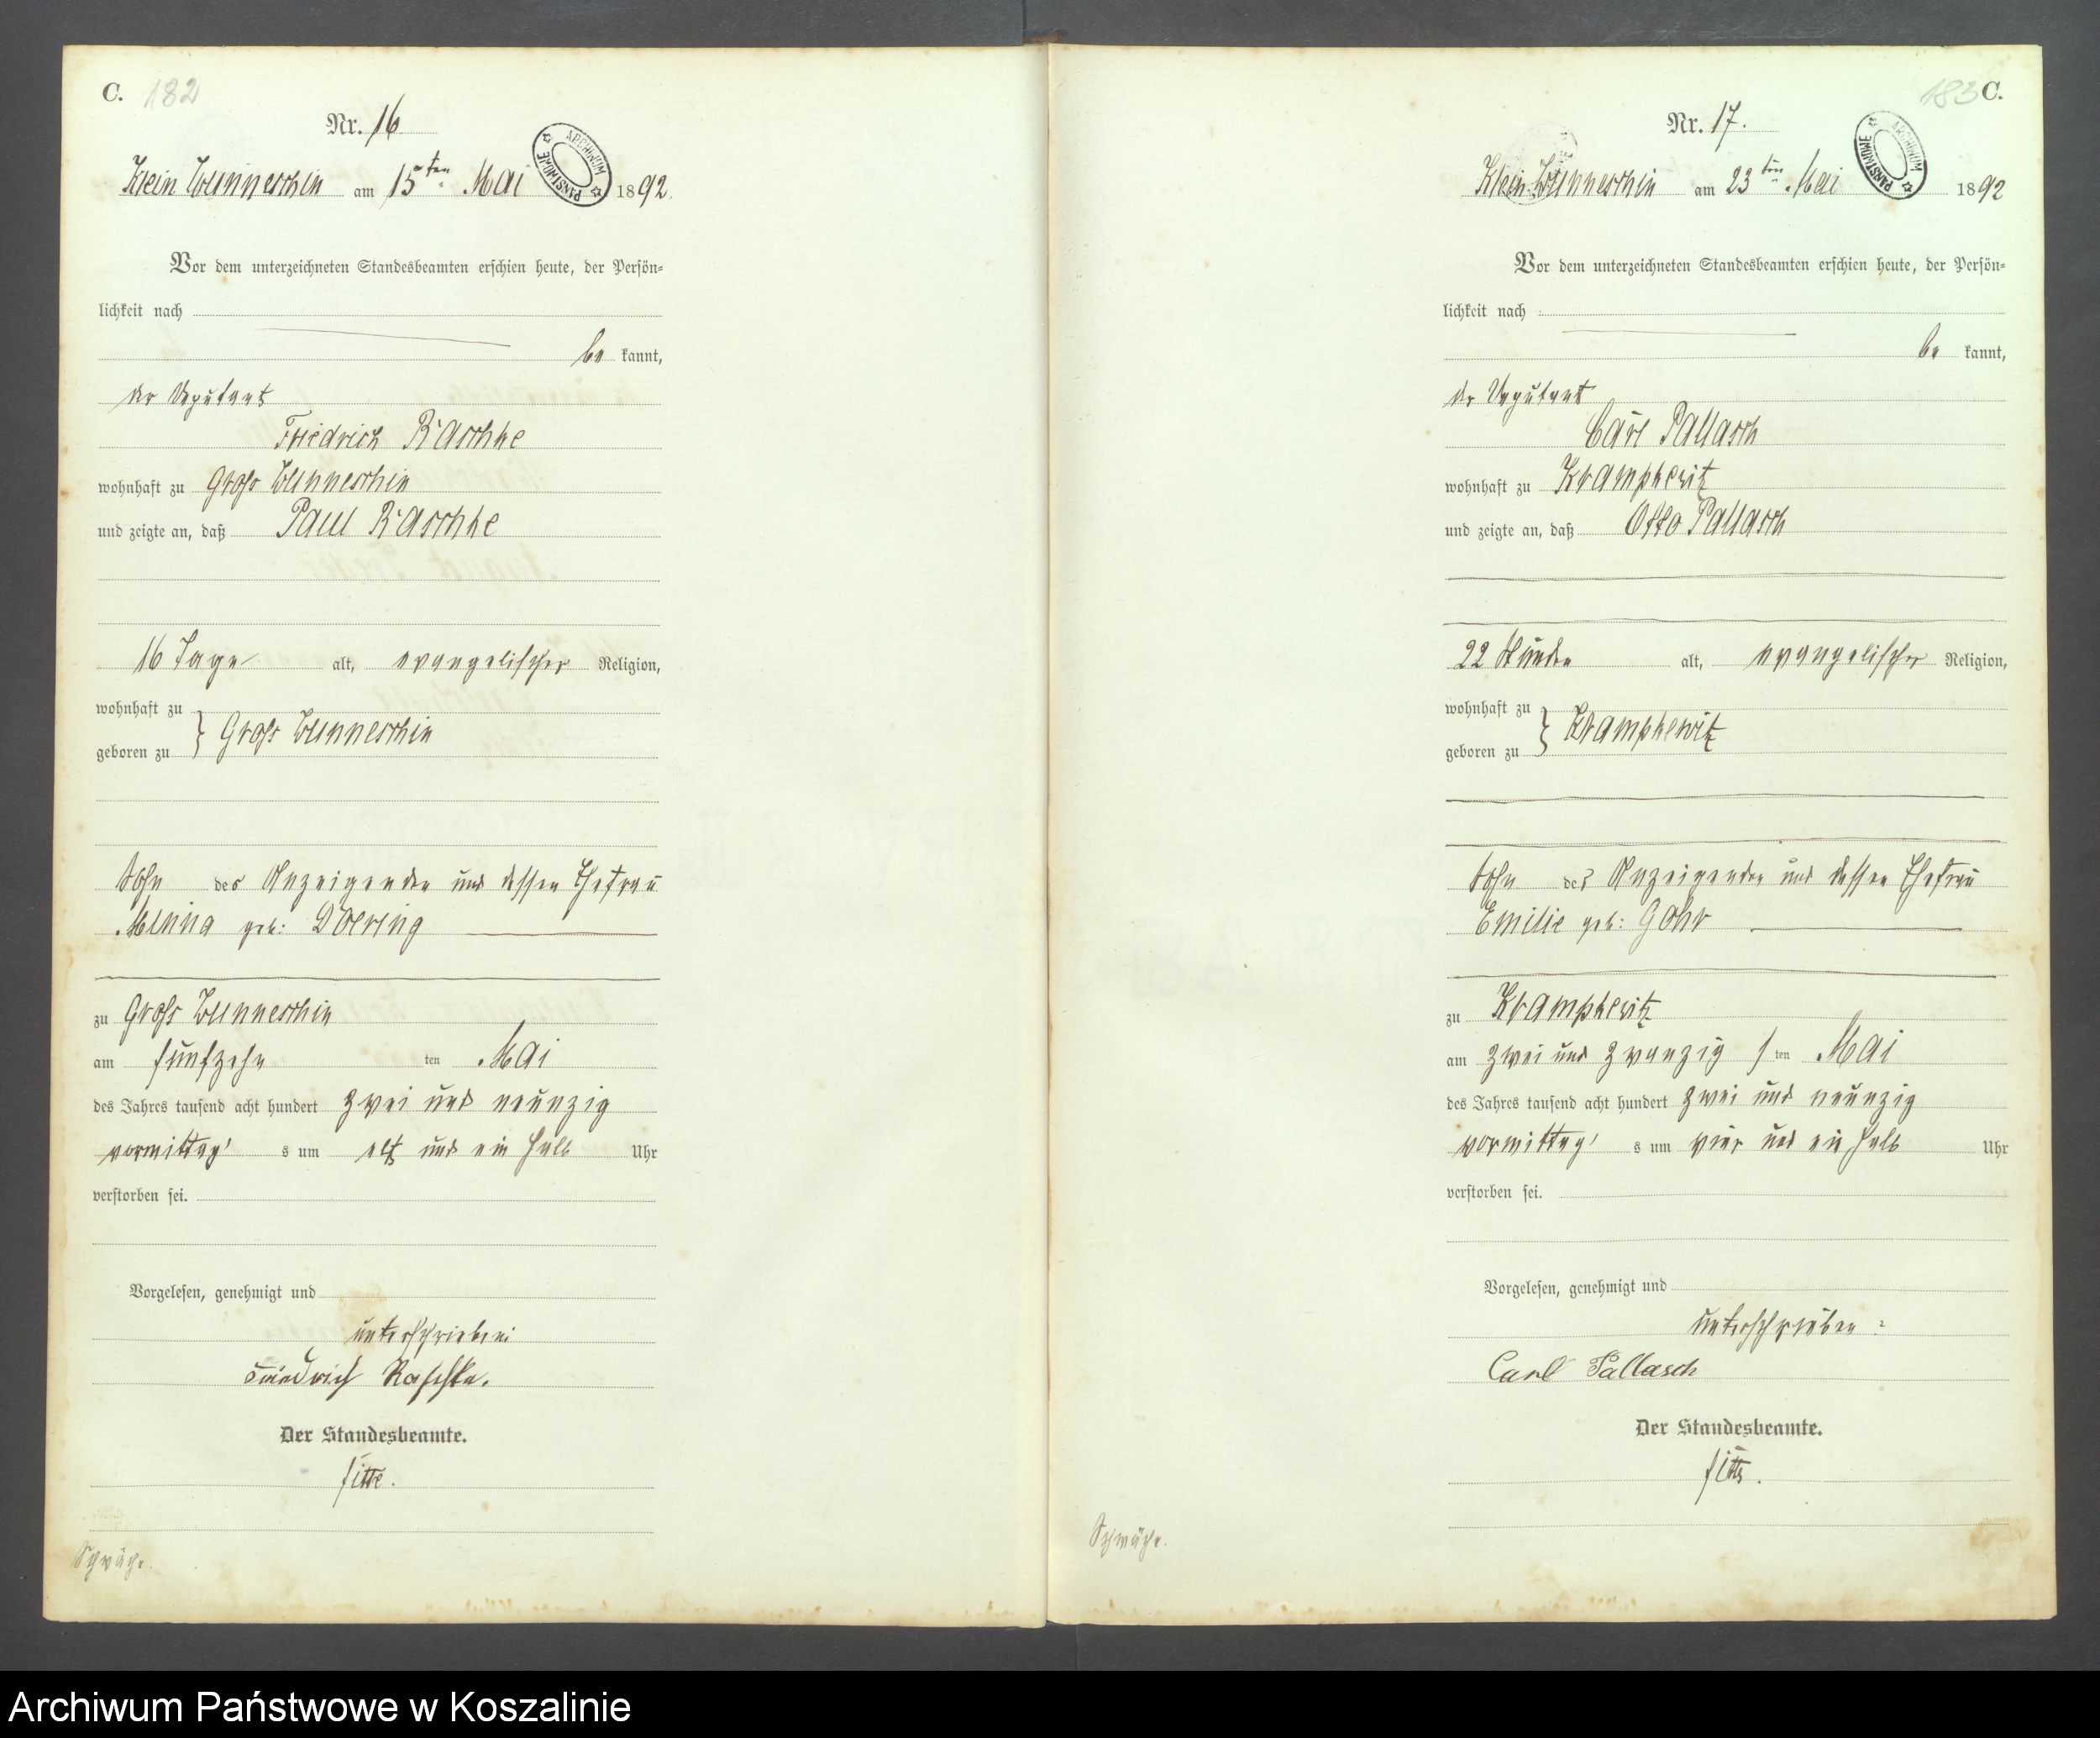 C. 182
Nr. 16
ARCHIWUM PAŃSTWOWE
Klein Wunneschin am 15ten Mai 1892.
Vor dem unterzeichneten Standesbeamten erschien heute, der Persön-
lichkeit nach
be kannt,
der Deputant
Friedrich Raschke
wohnhaft zu Gross Wunneschin
und zeigte an, daß Paul Raschke
16 Tage alt, evangelischer Religion,
wohnhaft zu
geboren zu } Gross Wunneschin
Sohn des Anzeigenden und dessen Ehefrau
Minna geb: Doering
zu Gross Wunneschin
am fünfzehn ten Mai
des Jahres tausend acht hundert zwei und neunzig
vormittag s um elf und ein halb Uhr
verstorben sei.
Vorgelesen, genehmigt und
unterschrieben
Friedrich Raschke.
Der Standesbeamte.
Schwäche.
183 C.
Nr. 17.
ARCHIWUM PAŃSTWOWE
Klein Wunneschin am 23ten Mai 1892
Vor dem unterzeichneten Standesbeamten erschien heute, der Persön-
lichkeit nach
be kannt,
der Deputant
Carl Pallasch
wohnhaft zu Krampkewitz
und zeigte an, daß Otto Pallasch
22 Stunden alt, evangelischer Religion,
wohnhaft zu
geboren zu } Krampkewitz
Sohn des Anzeigenden und dessen Ehefrau
Emilie geb: Gohr
zu Krampkewitz
am zwei und zwanzig ten Mai
des Jahres tausend acht hundert zwei und neunzig
vormittag s um vier und ein halb Uhr
verstorben sei.
Vorgelesen, genehmigt und
unterschrieben:
Carl Pallasch
Der Standesbeamte.
Schwäche.
Archiwum Państwowe w Koszalinie